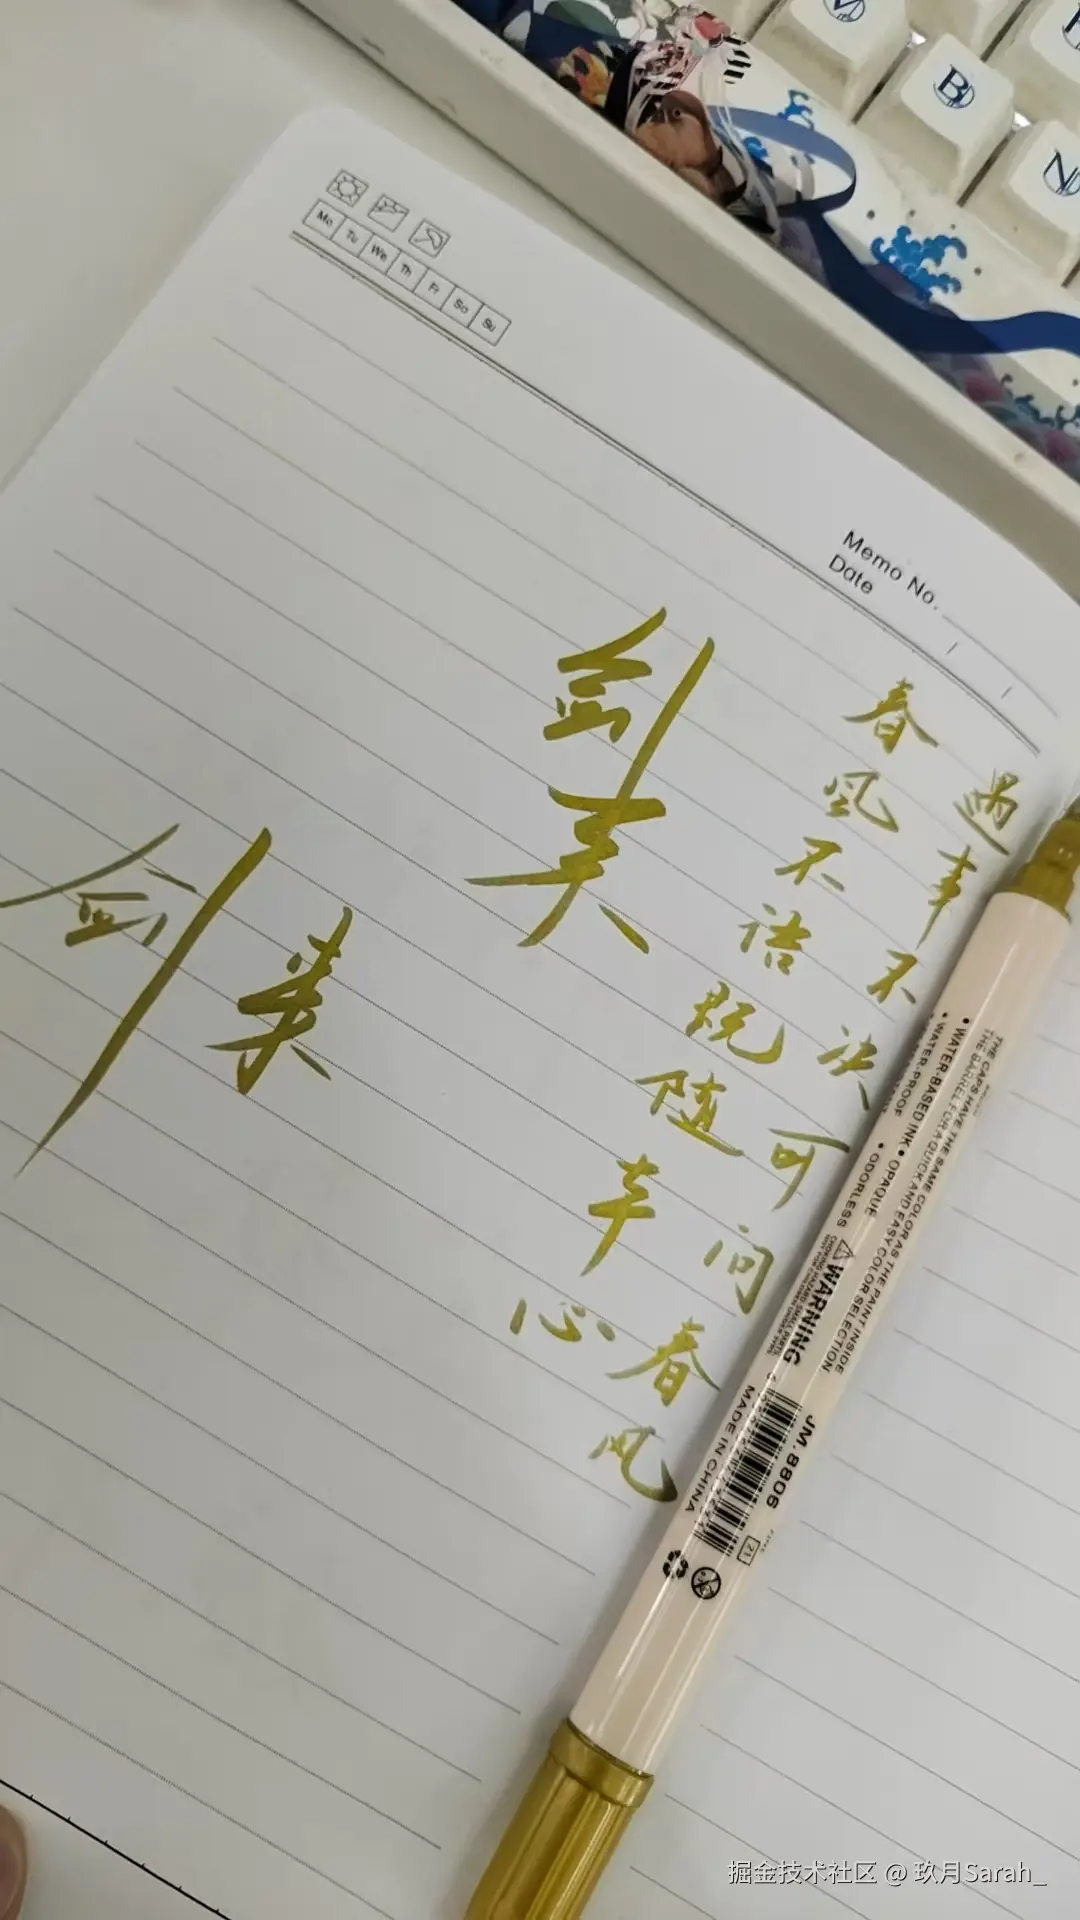 B
N
Mo Tu We Th Fr Sa Su
Memo No.
Date
遇事不决可问春风
春风不语既随本心
剑来
剑来
THE CAPS HAVE THE SAME COLOR AS THE PAINT INSIDE
THE BARREL FOR A QUICK AND EASY COLOR SELECTION.
• WATER-BASED INK • OPAQUE
• WATER-PROOF • ODORLESS
WARNING
MADE IN CHINA
JM. 8806
21
掘金技术社区 @ 玖月Sarah_